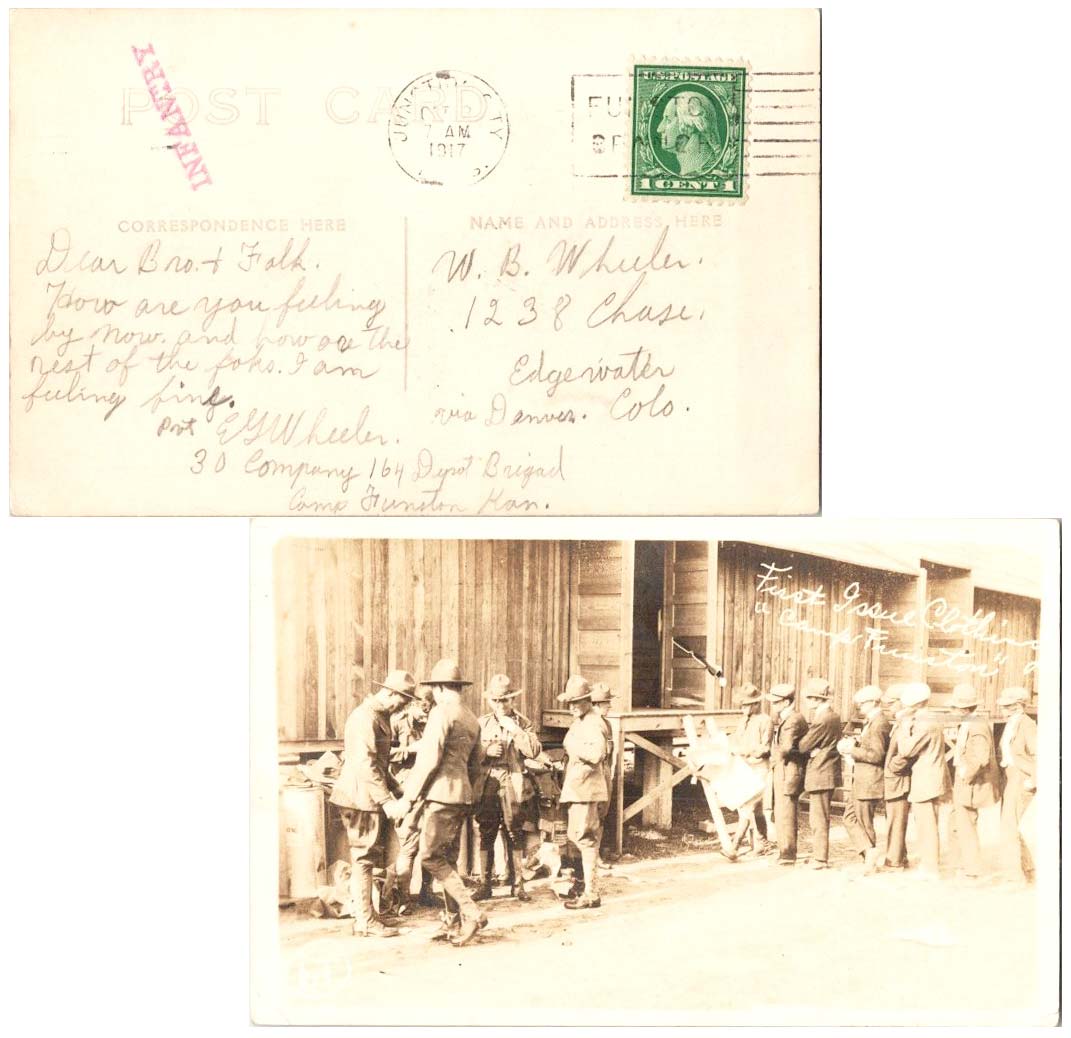 POST CARD
INFANTRY
JUNCTION CITY
OCT
7 AM
1917
FUNSTON
U.S. POSTAGE
1 CENT 1
CORRESPONDENCE HERE
NAME AND ADDRESS HERE
Dear Bro. + Folk.
How are you feeling
by now. and how are the
rest of the foks. I am
feeling fine.
Pvt EGWheeler.
30 Company 164 Depot Brigad
Camp Funston Kan.
W. B. Wheeler.
1238 Chase.
Edgewater
via Denver. Colo.
First Issue Clothing
"Camp Funston"